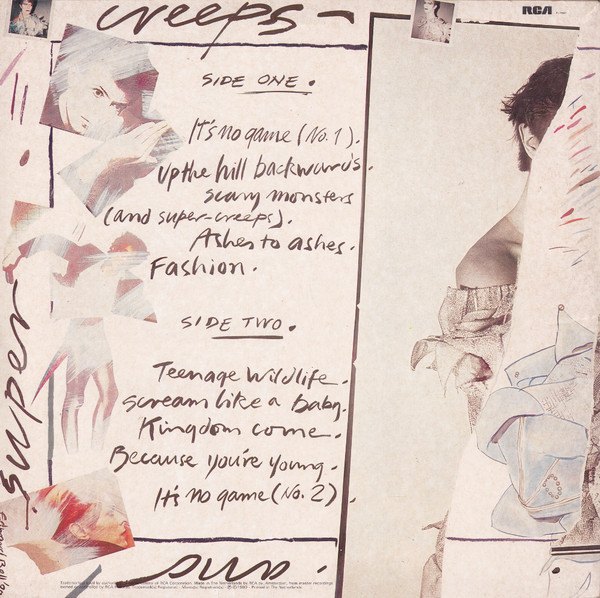 creeps -
RCA
SIDE ONE.
It's no game (No. 1).
Up the hill backwards.
Scary monsters
(and super-creeps).
Ashes to ashes.
Fashion.
SIDE TWO.
Teenage Wildlife.
Scream like a baby.
Kingdom come.
Because you're young.
It's no game (No. 2).
super
and.
Edward Bell '80